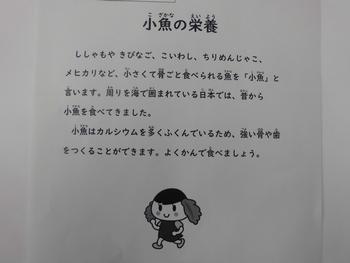 小魚の栄養
ししゃもや きびなご、こいわし、ちりめんじゃこ、
メヒカリなど、小さくて骨ごと食べられる魚を「小魚」と
言います。周りを海で囲まれている日本では、昔から
小魚を食べてきました。
小魚はカルシウムを多くふくんでいるため、強い骨や歯
をつくることができます。よくかんで食べましょう。